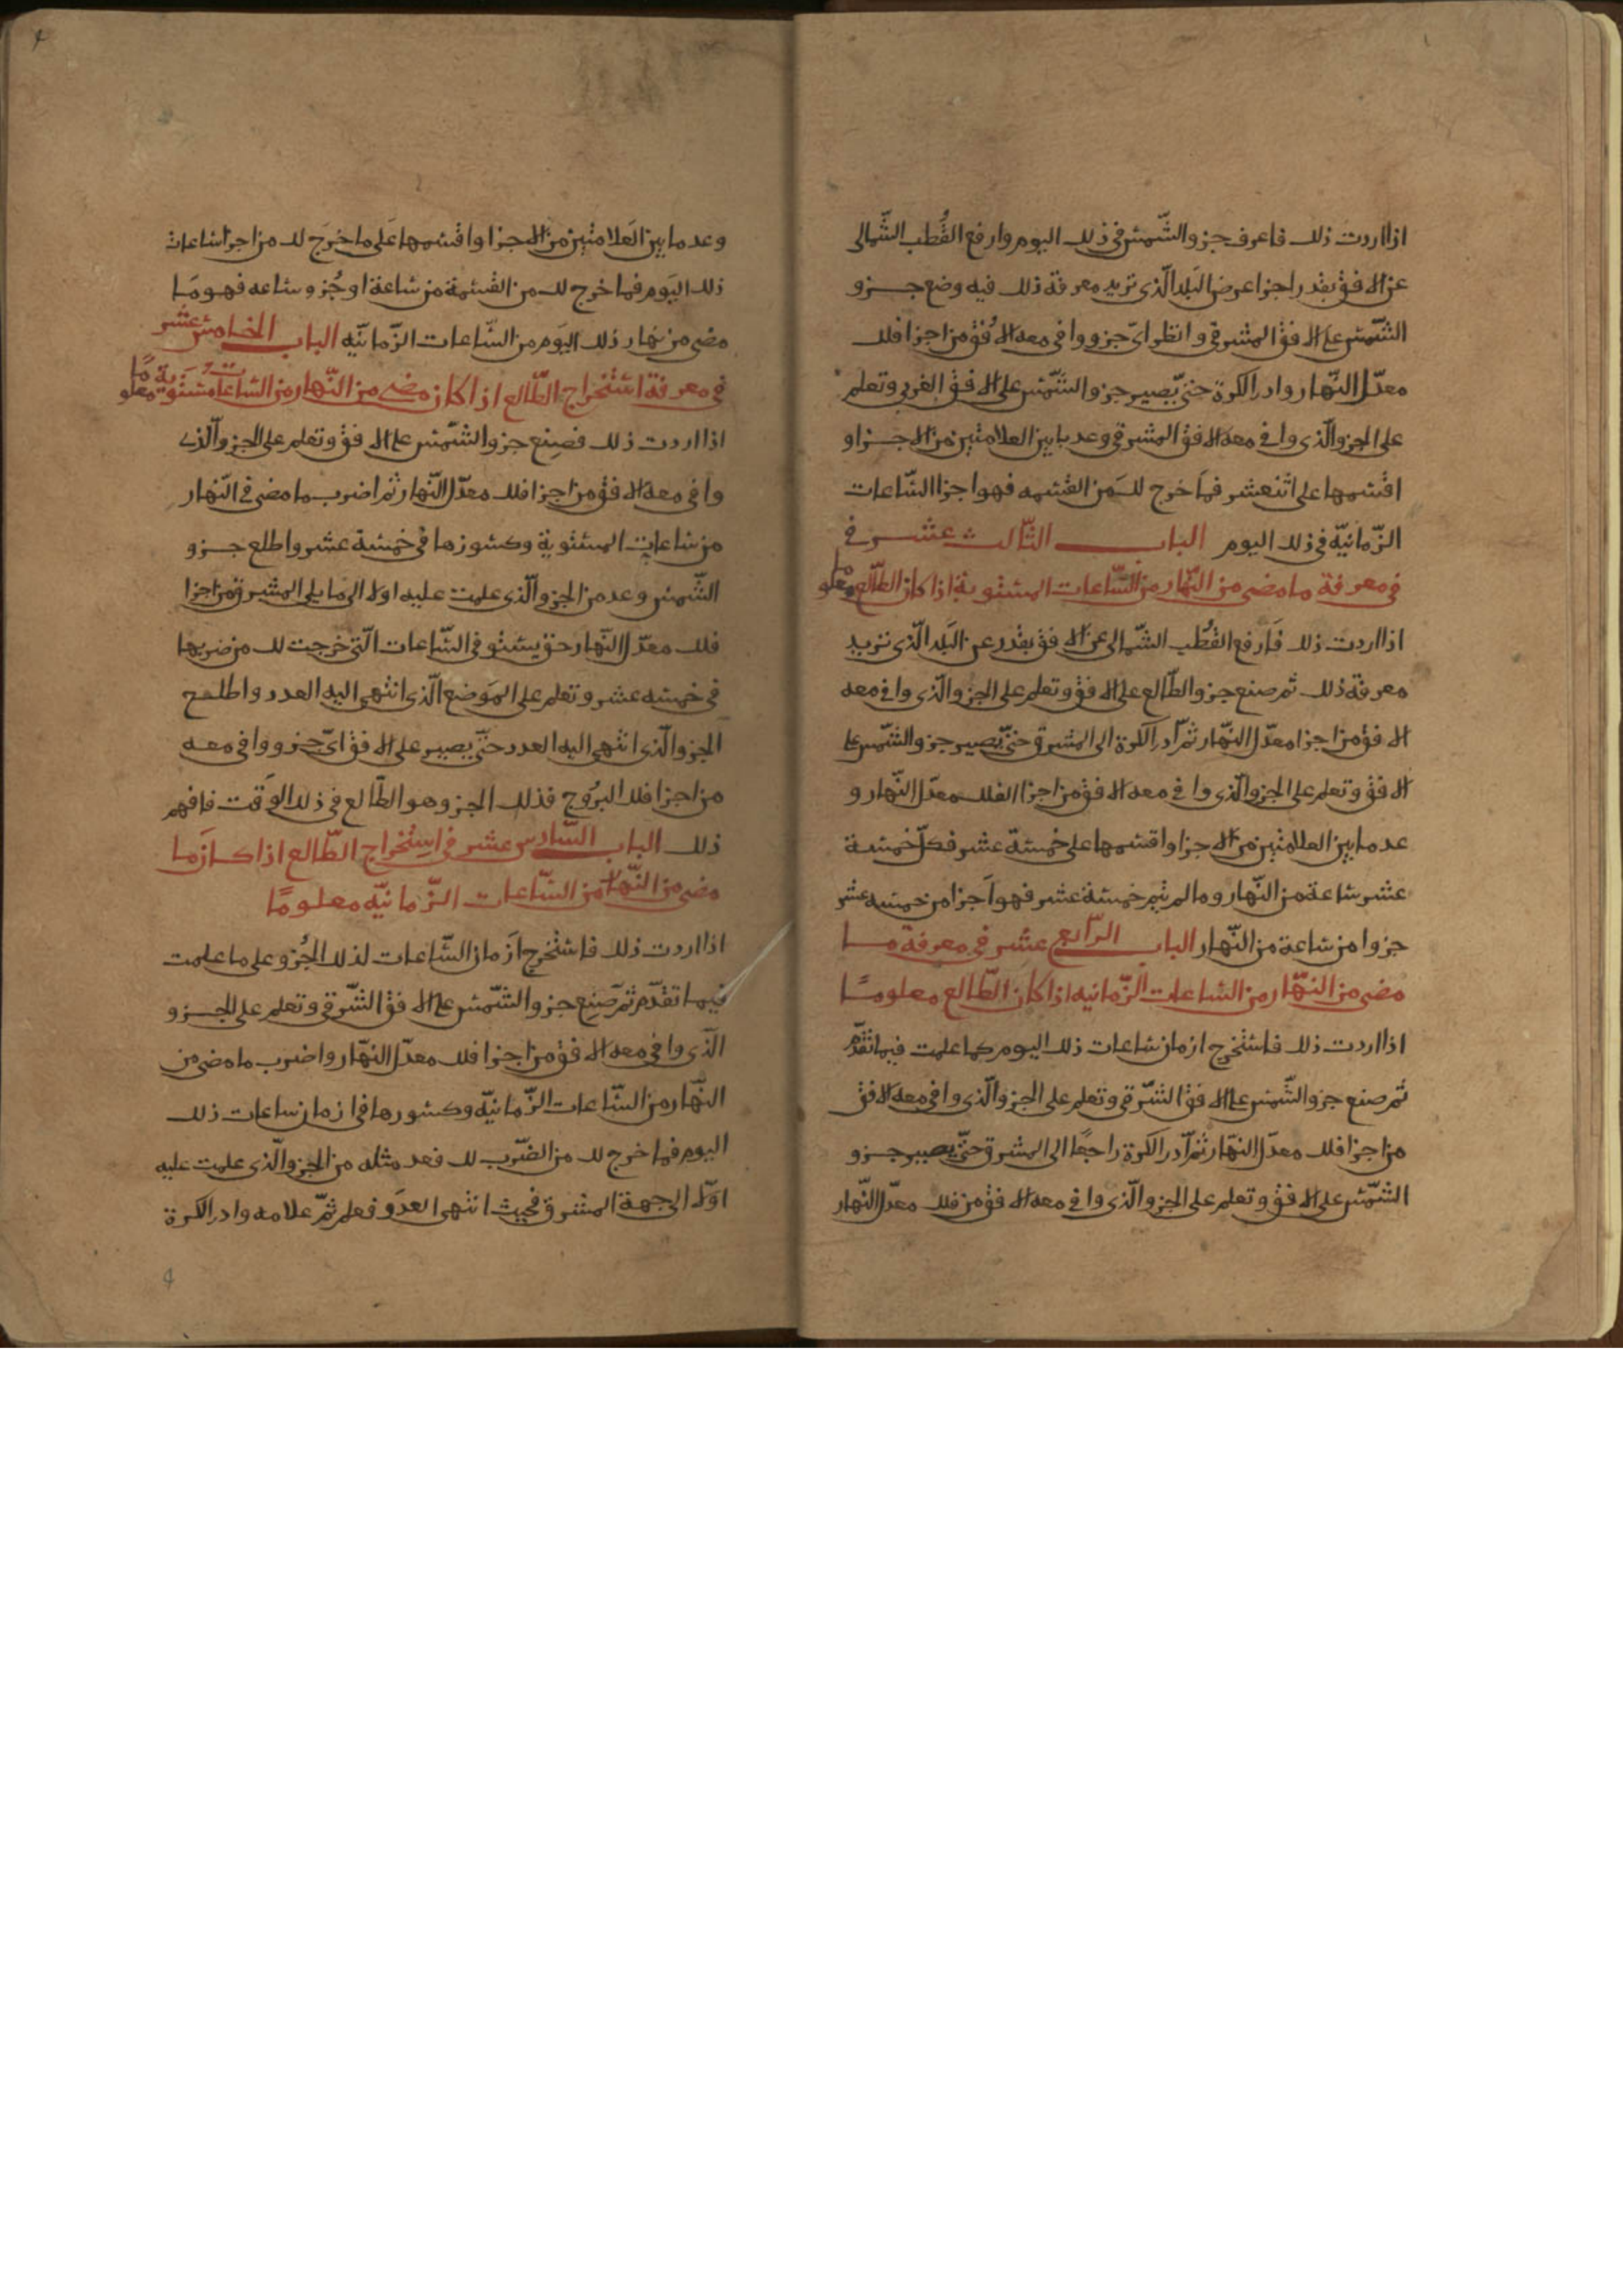 اذا اردت ذلك فاعرف جزو الشّمس في ذلك اليوم وارفع القُطب الشّمالي
عن الافق بقدر اجزا عرض البلد الّذي تريد معرفة ذلك فيه وضع جـــزو
الشّمس على الافق المشرقي وانظر ايّ جزو وافي معه الافق من اجزا فلك
معدّل النّهار وادر الكرة حتيّ يصير جزو الشّمس على الافق الغربي وتعلم
على الجزو الّذي وافي معه الافق المشرقي وعد ما بين العلامتين من الاجـزا و
اقسمها على اثنعشر فما خرج لك من القسمه فهو اجزا السّاعات
الزّمانيّة في ذلك اليوم البـاب الثّالث عشـر في
في معرفة ما مضي من النّهار من السّاعات المستوية اذا كان الطّالع معلوما
اذا اردت ذلك فارفع القُطب الشّمالي عن الافق بقدر عن البلد الّذي تزيد
معرفة ذلك ثم صنع جزو الطّالع على الافق وتعلم على الجزو والّذي وافي معه
الافق من اجزا معدّل النّهار ثمّ ادر الكرة الى المشرق حتيّ يصير جزو الشّمس على
الافق وتعلم على الجزو الّذي وافي معه الافق من اجزا الفلك معدّل النّهار و
عد ما بين العلامتين من الاجزا واقسمها على خمسة عشر فكلّ خمسة
عشر ساعة من النّهار وما لم يتم خمسة عشر فهو اجزا من خمسه عشر
جزوا من ساعة من النّهار البـاب الرّابع عشر في معرفة مـا
مضي من النّهار من الساعات الزّمانيه اذا كان الطّالع معلومـًا
اذا اردت ذلك فاستخرج ازمان ساعات ذلك اليوم كما علمت فيما تقدّم
ثم صنع جزو الشّمس على الافق الشّرقي وتعلم على الجزو الّذي وافي معه الافق
من اجزا فلك معدّل النّهار ثمّ ادر الكرة راجعًا الى المشرق حتيّ يصير جـزو
الشّمس على الافق وتعلم على الجزو الّذي وافي معه الافق من فلك معدّل النّهار
وعد ما بين العلامتين من الاجزا واقسمها على ما خرج لك من اجزا ساعات
ذلك اليوم فما خرج لك من القسمة من ساعة او جُزو ساعه فهو مـا
مضي من نهار ذلك اليوم من السّاعات الزّمانيّه البـاب الخـامس عشر
في معرفة استخراج الطّالع اذا كان مضي من النّهار من السّاعات مستوية معلومًا
اذا اردت ذلك فصنع جزو الشّمس على الافق وتعلم على الجزو الّذي
وافي معه الافق من اجزا فلك معدّل النّهار ثم اضرب ما مضي في النّهار
من ساعات المستوية وكسورها في خمسة عشر واطلع جـزو
الشّمس وعد من الجزو الّذي علمت عليه اولا الى ما يلي المشرق من اجزا
فلك معدّل النّهار حتي يستو في السّاعات الّتي خرجت لك من ضربها
في خمسه عشر وتعلم على الموضع الّذي انتهي اليه العدد واطلـع
الجزو الّذي انتهي اليه العدد حتيّ يصير على الافق ايّ جزو وافي معـه
من اجزا فلك البرُوج فذلك الجزو هو الطّالع في ذلك الوقت فافهم
ذلك البـاب السّادس عشر في استخراج الطّالع اذا كـان مـا
مضي من النّهار من السّاعات الزّمانيّه معلومًا
اذا اردت ذلك فاستخرج ازمان السّاعات لذلك الجُزو على ما علمت
فيما تقدّم ثم صنع جزو الشّمس على الافق الشّرقي وتعلم على الجـزو
الّذي وافي معه الافق من اجزا فلك معدّل النّهار واضرب ما مضي من
النّهار من السّاعات الزّمانيّه وكسورها في ازمان ساعات ذلك
اليوم فما خرج لك من الضّرب لك فعد مثله من الجزو الّذي علمت عليه
اوّلا الى جهة المشرق فحيث انتهي العدد فعلم ثمّ علامه وادر الكرة